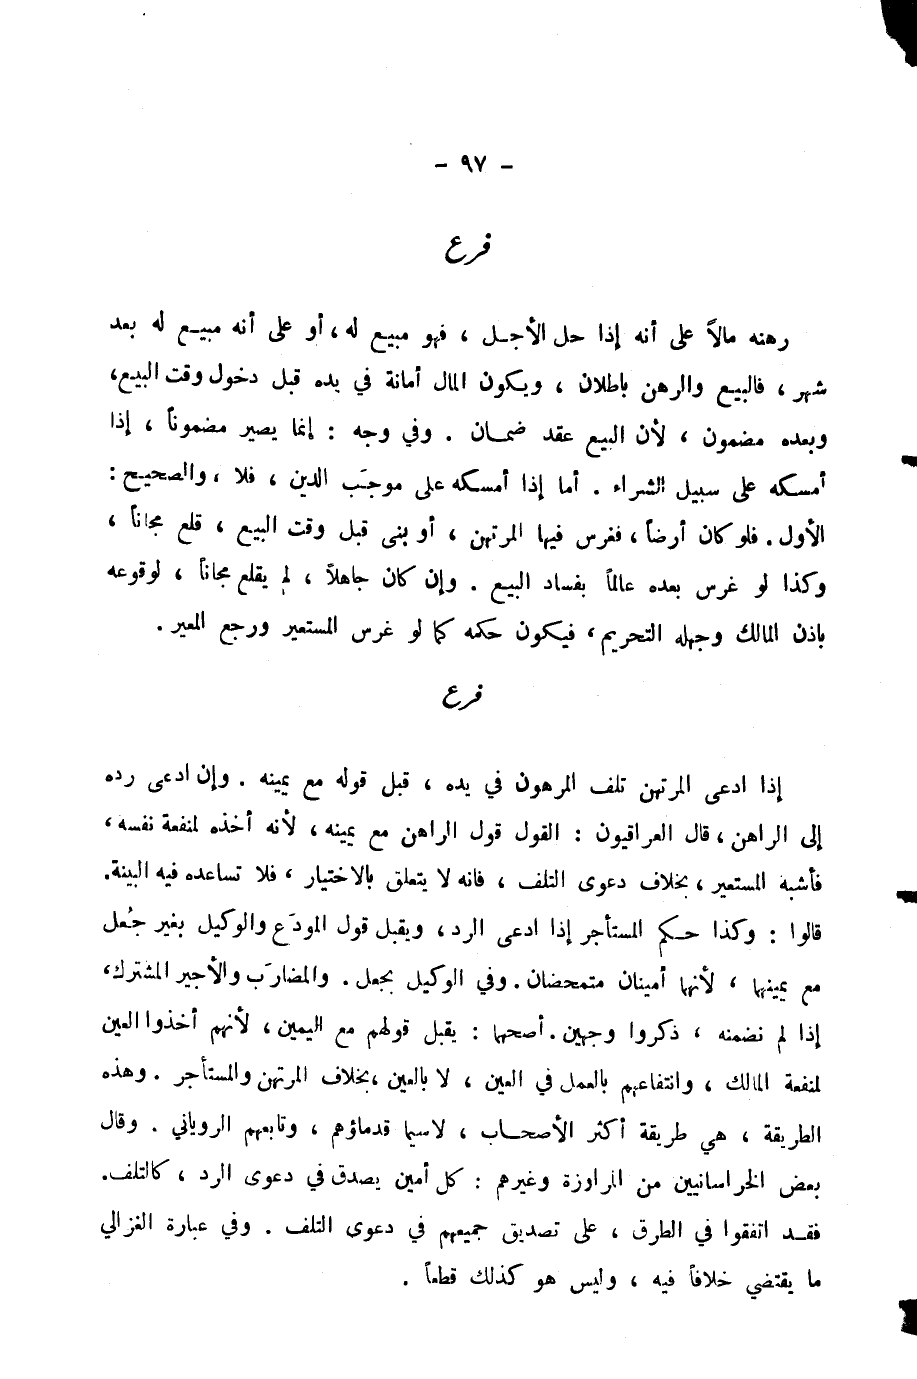 - ٩٧ -
فرع
رهنه مالاً على أنه إذا حل الأجل ، فهو مبيع له ، أو على أنه مبيع له بعد
شهر ، فالبيع والرهن باطلان ، ويكون المال أمانة في يده قبل دخول وقت البيع،
وبعده مضمون ، لأن البيع عقد ضمان . وفي وجه : إنما يصير مضموناً ، إذا
أمسكه على سبيل الشراء . أما إذا أمسكه على موجَب الدين ، فلا ، والصحيح :
الأول . فلو كان أرضاً ، فغرس فيها المرتهن ، أو بنى قبل وقت البيع ، قلع مجاناً ،
وكذا لو غرس بعده عالماً بفساد البيع . وإن كان جاهلاً ، لم يقلع مجاناً ، لوقوعه
باذن المالك وجهله التحريم ، فيكون حكمه كما لو غرس المستعير ورجع المعير .
فرع
إذا ادعى المرتهن تلف المرهون في يده ، قبل قوله مع يمينه . وإن ادعى رده
إلى الراهن ، قال العراقيون : القول قول الراهن مع يمينه ، لأنه أخذه لمنفعة نفسه ،
فأشبه المستعير ، بخلاف دعوى التلف ، فانه لا يتعلق بالاختيار ، فلا تساعده فيه البينة.
قالوا : وكذا حكم المستأجر إذا ادعى الرد ، ويقبل قول المودَع والوكيل بغير جُعل
مع يمينها ، لأنها أمينان متمحضان . وفي الوكيل بجعل . والمضارَب والأجير المشترك ،
إذا لم نضمنه ، ذكروا وجهين . أصحها : يقبل قولهم مع اليمين ، لأنهم أخذوا العين
لمنفعة المالك ، وانتفاعهم بالعمل في العين ، لا بالعين ، بخلاف المرتهن والمستأجر . وهذه
الطريقة ، هي طريقة أكثر الأصحاب ، لاسيما قدماؤهم ، وتابعهم الروياني . وقال
بعض الخراسانيين من المراوزة وغيرهم : كل أمين يصدق في دعوى الرد ، كالتلف.
فقد اتفقوا في الطرق ، على تصديق جميعهم في دعوى التلف . وفي عبارة الغزالي
ما يقتضي خلافاً فيه ، وليس هو كذلك قطعاً .